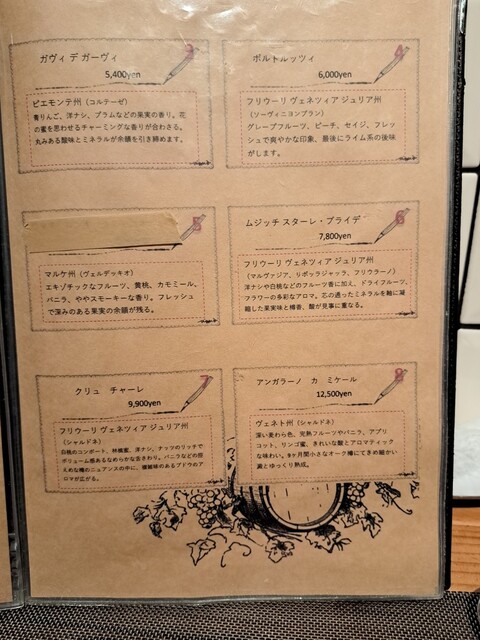 3
ガヴィ デ ガーヴィ
5,400yen
ピエモンテ州（コルテーゼ）
青りんご、洋ナシ、プラムなどの果実の香り。花
の蜜を思わせるチャーミングな香りが合わさる。
丸みある酸味とミネラルが余韻を引き締めます。
4
ボルトルッツィ
6,000yen
フリウーリ ヴェネツィア ジュリア州
（ソーヴィニヨンブラン）
グレープフルーツ、ピーチ、セイジ、フレッ
シュで爽やかな印象、最後にライム系の後味
がします。
5
マルケ州（ヴェルデッキオ）
エキゾチックなフルーツ、黄桃、カモミール、
バニラ、ややスモーキーな香り。フレッシュ
で深みのある果実の余韻が残る。
6
ムジッチ スターレ・ブライデ
7,800yen
フリウーリ ヴェネツィア ジュリア州
（マルヴァジア、リボッラジャッラ、フリウラーノ）
洋ナシや白桃などのフルーツ香に加え、ドライフルーツ、
フラワーの多彩なアロマ。芯の通ったミネラルを軸に凝
縮した果実味と樽香、酸が見事に重なる。
7
クリュ チャーレ
9,900yen
フリウーリ ヴェネツィア ジュリア州
（シャルドネ）
白桃のコンポート、林檎蜜、洋ナシ、ナッツのリッチで
ボリューム感あるなめらかな舌ざわり。バニラなどの控
えめな樽のニュアンスの中に、凝縮味のあるブドウのア
ロマが広がる。
8
アンガラーノ カ ミケール
12,500yen
ヴェネト州（シャルドネ）
深い麦わら色、完熟フルーツやバニラ、アプリ
コット、リンゴ蜜、きれいな酸とアロマティック
な味わい。9ヶ月間小さなオーク樽にてきめ細かい
澱とゆっくり熟成。